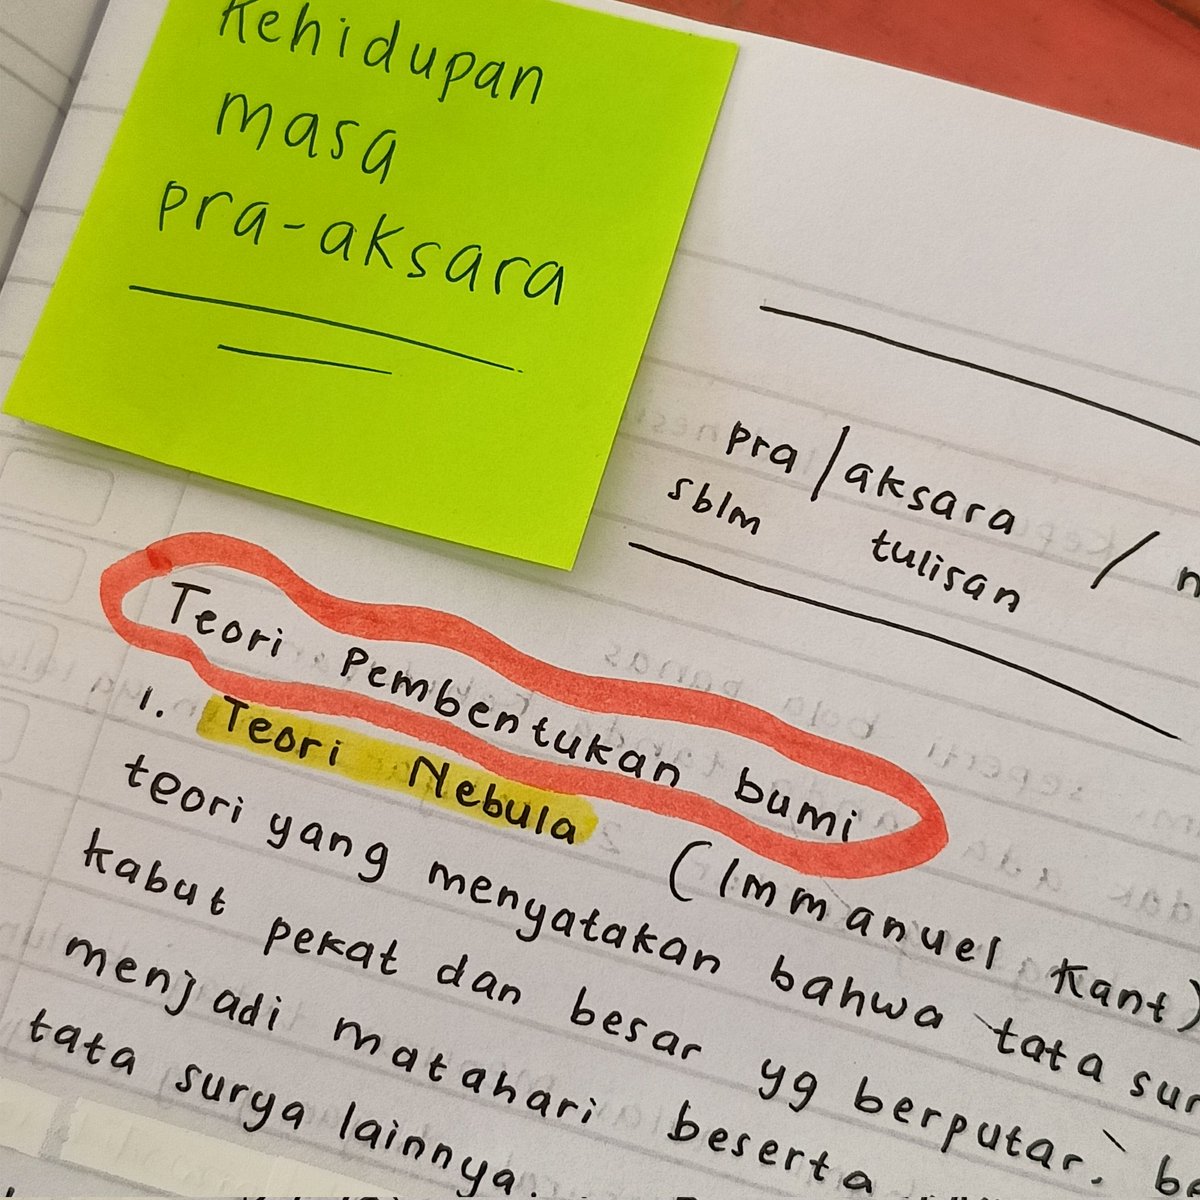 Kehidupan
masa
pra-aksara
pra/aksara /
sblm tulisan
Teori Pembentukan bumi
1. Teori Nebula (Immanuel Kant)
teori yang menyatakan bahwa tata
kabut pekat dan besar yg berputar.
menjadi matahari beserta
tata surya lainnya.